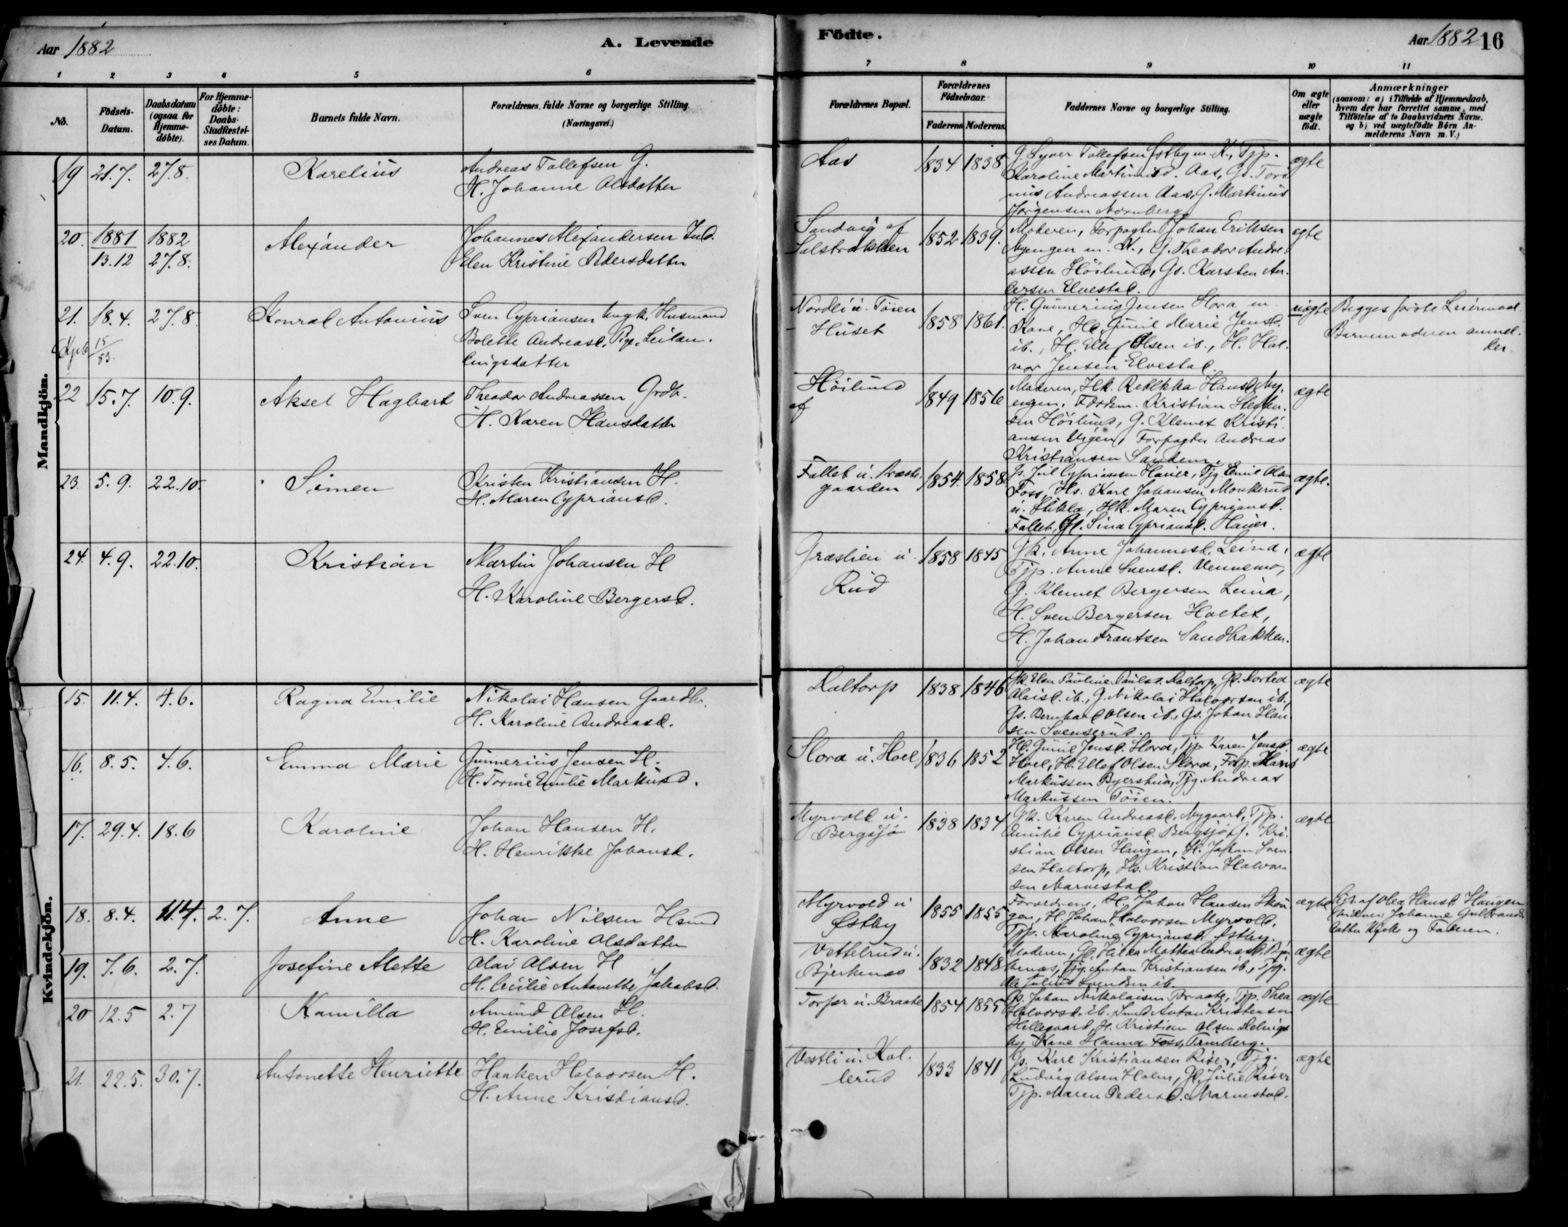 Aar 1882
A. Levende
Fødte.
Aar 1882 16
1 2 3 4 5 6 7 8 9 10 11
No.
Fødsels-Datum.
Daabsdatum (ogsaa for Hjemmedøbte).
For Hjemmedøbte: Daabs-Stadfæstelses Datum.
Barnets fulde Navn.
Forældrenes fulde Navne og borgerlige Stilling (Næringsvei.)
Forældrenes Bopæl.
Forældrenes Fødselsaar.
Faderens Moderens.
Faddernes Navne og borgerlige Stilling.
Om ægte eller uægte født.
Anmærkninger
(saasom: a) i Tilfælde af Hjemmedaab, hvem der har forrettet samme, med Tilføielse af to Daabsvidners Navne, og b) ved uægtefødte Børn Anmelderens Navn m. V.)
Mandkjøn.
19 21.7. 27.8. Karelius
Andreas Tollefsen G.
H. Johanne Olsdatter
Aas 1834 1838
G. Syver Tollefsen Østby m. K., Tjp.
Karoline Martinsd. Aas, Gs.
Andreassen Aas, G. Martinus
Jørgensen
ægte
20. 1881 1882 Alexander
13.12 27.8.
Johannes Alexandersen Ind.
Elen Kristine Pedersdatter
Sandvig af
1852 1839.
Moderen, Forpagter Johan Eriksen
m. K., G. Theodor Andreassen
Høilund, Gs. Karsten
Elvestad.
ægte
21. 18.4. 27.8. Konrad Antonius
Sven Cypriansen Ungk. Husmand
Bolette Andreasd. Pige,
Nordli u. Töien
Huset
1858 1861
H. Gunnerius Jensen Slora m.
Kone, Hk. Gunil Marie Jensd.
ib., H. Ellef Olsen ib., H. Halvor
Jensen Elvestad.
uægte
Begges første Leiermaal
Barnemoderen anmelder.
22 15.7. 10.9. Aksel Hagbart
Theodor Andreassen Grdb.
H. Karen Hansdatter
Høilund
af
1849 1856
Moderen, Hk. Rebekka Hansd.
Kristian
Høilund, G. Klemet Kristiansen
Forpagter Andreas
Kristiansen
ægte
23. 5.9. 22.10. Simen
Kristen Kristiansen H.
H. Maren Cypriansd.
Fallet u.
gaarden
1854 1858
Gs. Jul Cypriansen Haier, Tjg. Emil
Foss, Hs. Karl Johansen Monkerud
u. Hk. Maren Cypriansd.
Fallet, Gp. Lina Cypriansd. Haier.
ægte.
24. 4.9. 22.10. Kristian
Martin Johansen H
H. Karoline Bergersd.
Græslien u.
Rud
1858 1845
Gk. Anne Johannesd. Leina,
Tjp. Anne Svensd.
G. Klemet Bergersen Leina,
H. Sven Bergersen Holtet,
H. Johan Frantsen Sandbakken.
ægte
Kvindekjøn.
15. 11.4. 4.6. Ragna Emilie
Nikolai Hansen Gaardb.
H. Karoline Andreasd.
Haltorp 1838 1846
Gk. Elen Pauline Paulsd. Haltorp, Gp. Dortea
ib., G. Nikolai Halvorsen ib.,
Gs. Bernhard Olsen ib., Gs. Johan Hansen
Svenserud.
ægte
16. 8.5. 4.6. Emma Marie
Gunnerius Jensen H.
H. Torine Emilie Markusd.
Slora u. Hoel 1836 1852
Hk. Gunil Jensd. Slora, Tjp. Karen Jensd.
Hoel, H. Ellef Olsen Slora, Hans
Markussen Tjg. Andreas
Markussen Töien.
ægte
17. 29.4. 18.6 Karoline
Johan Hansen H.
H. Henrikke Johansd.
Myrvold u.
Bergsjø
1838 1834
Gk. Karen Andreasd. Nygaard, Tjp.
Emilie Cypriansd. Bergsjø, Kristian
Olsen Haugen, H. Johan Svensen
Haltorp, Hs. Kristian Halvorsen
Marnestad
ægte
18. 8.4. 11.4. 2.7 Anne
Johan Nilsen Hsmd
H. Karoline Olsdatter
Myrvold u
Østby
1855 1855
Forældrene, H. Johan Hansen
H. Johan Halvorsen Myrvold,
Tjp. Karoline Cypriansd. Østby.
ægte
Olea Hansd. Haugen
Johanne Gulbrands-
datter og Faderen.
19. 7.6. 2.7. Josefine Mette
Olai Olsen H
H. Cecilie Antonette Jakobsd.
u.
Bjerkenes
1832 1848
Moderen, Mathea
Tjg. Anton Kristiansen ib., Tjg.
Julius Svendsen ib.
ægte
20 12.5 2.7 Kamilla
Amund Olsen H.
H. Emilie Josefsd.
Torper u. Braate 1854 1855
Gs. Johan Nikolaisen Braate, Tjp. Thea
Halvorsd. ib. Anton Kristensen
Hellegaard, H. Kristian Olsen
Kone Hanna Foss,
ægte
21. 22.5. 30.7. Antonette Henriette
Haaken Halvorsen H.
H. Anne Kristiansd.
Vestli u. Kol-
lerud
1833 1841
Gs. Karl Kristiansen Riser, Tjg.
Ludvig Olsen Holm, Gp. Julie Riser
Tjp. Maren Pedersd. Marnestad.
ægte